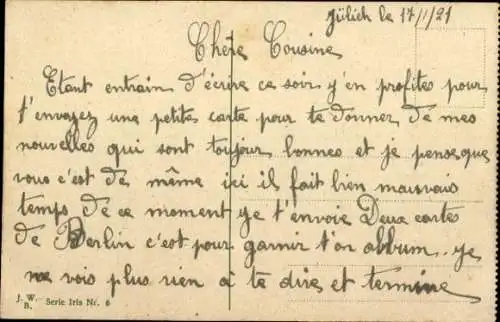 Jülich le 17/1/21
Chère Cousine
Etant entrain d'écrire ce soir j'en profites pour
t'envoyez une petite carte pour te donner de mes
nouvelles qui sont toujour bonnes et je pense que
vous c'est de même ici il fait bien mauvais
temps de ce moment je t'envoie Deux cartes
de Berlin c'est pour garnir t'on album. je
ne vois plus rien à te dire et termine
J. W.
B. Serie Iris Nr. 6